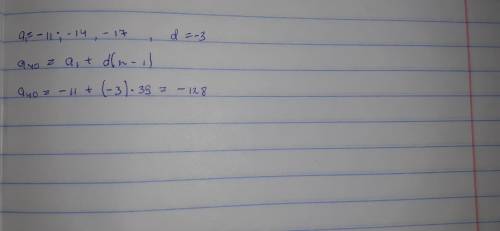 a₁=-11; -14, -17, d=-3
a₄₀ = a₁ + d(n-1)
a₄₀ = -11 + (-3)·39 = -128